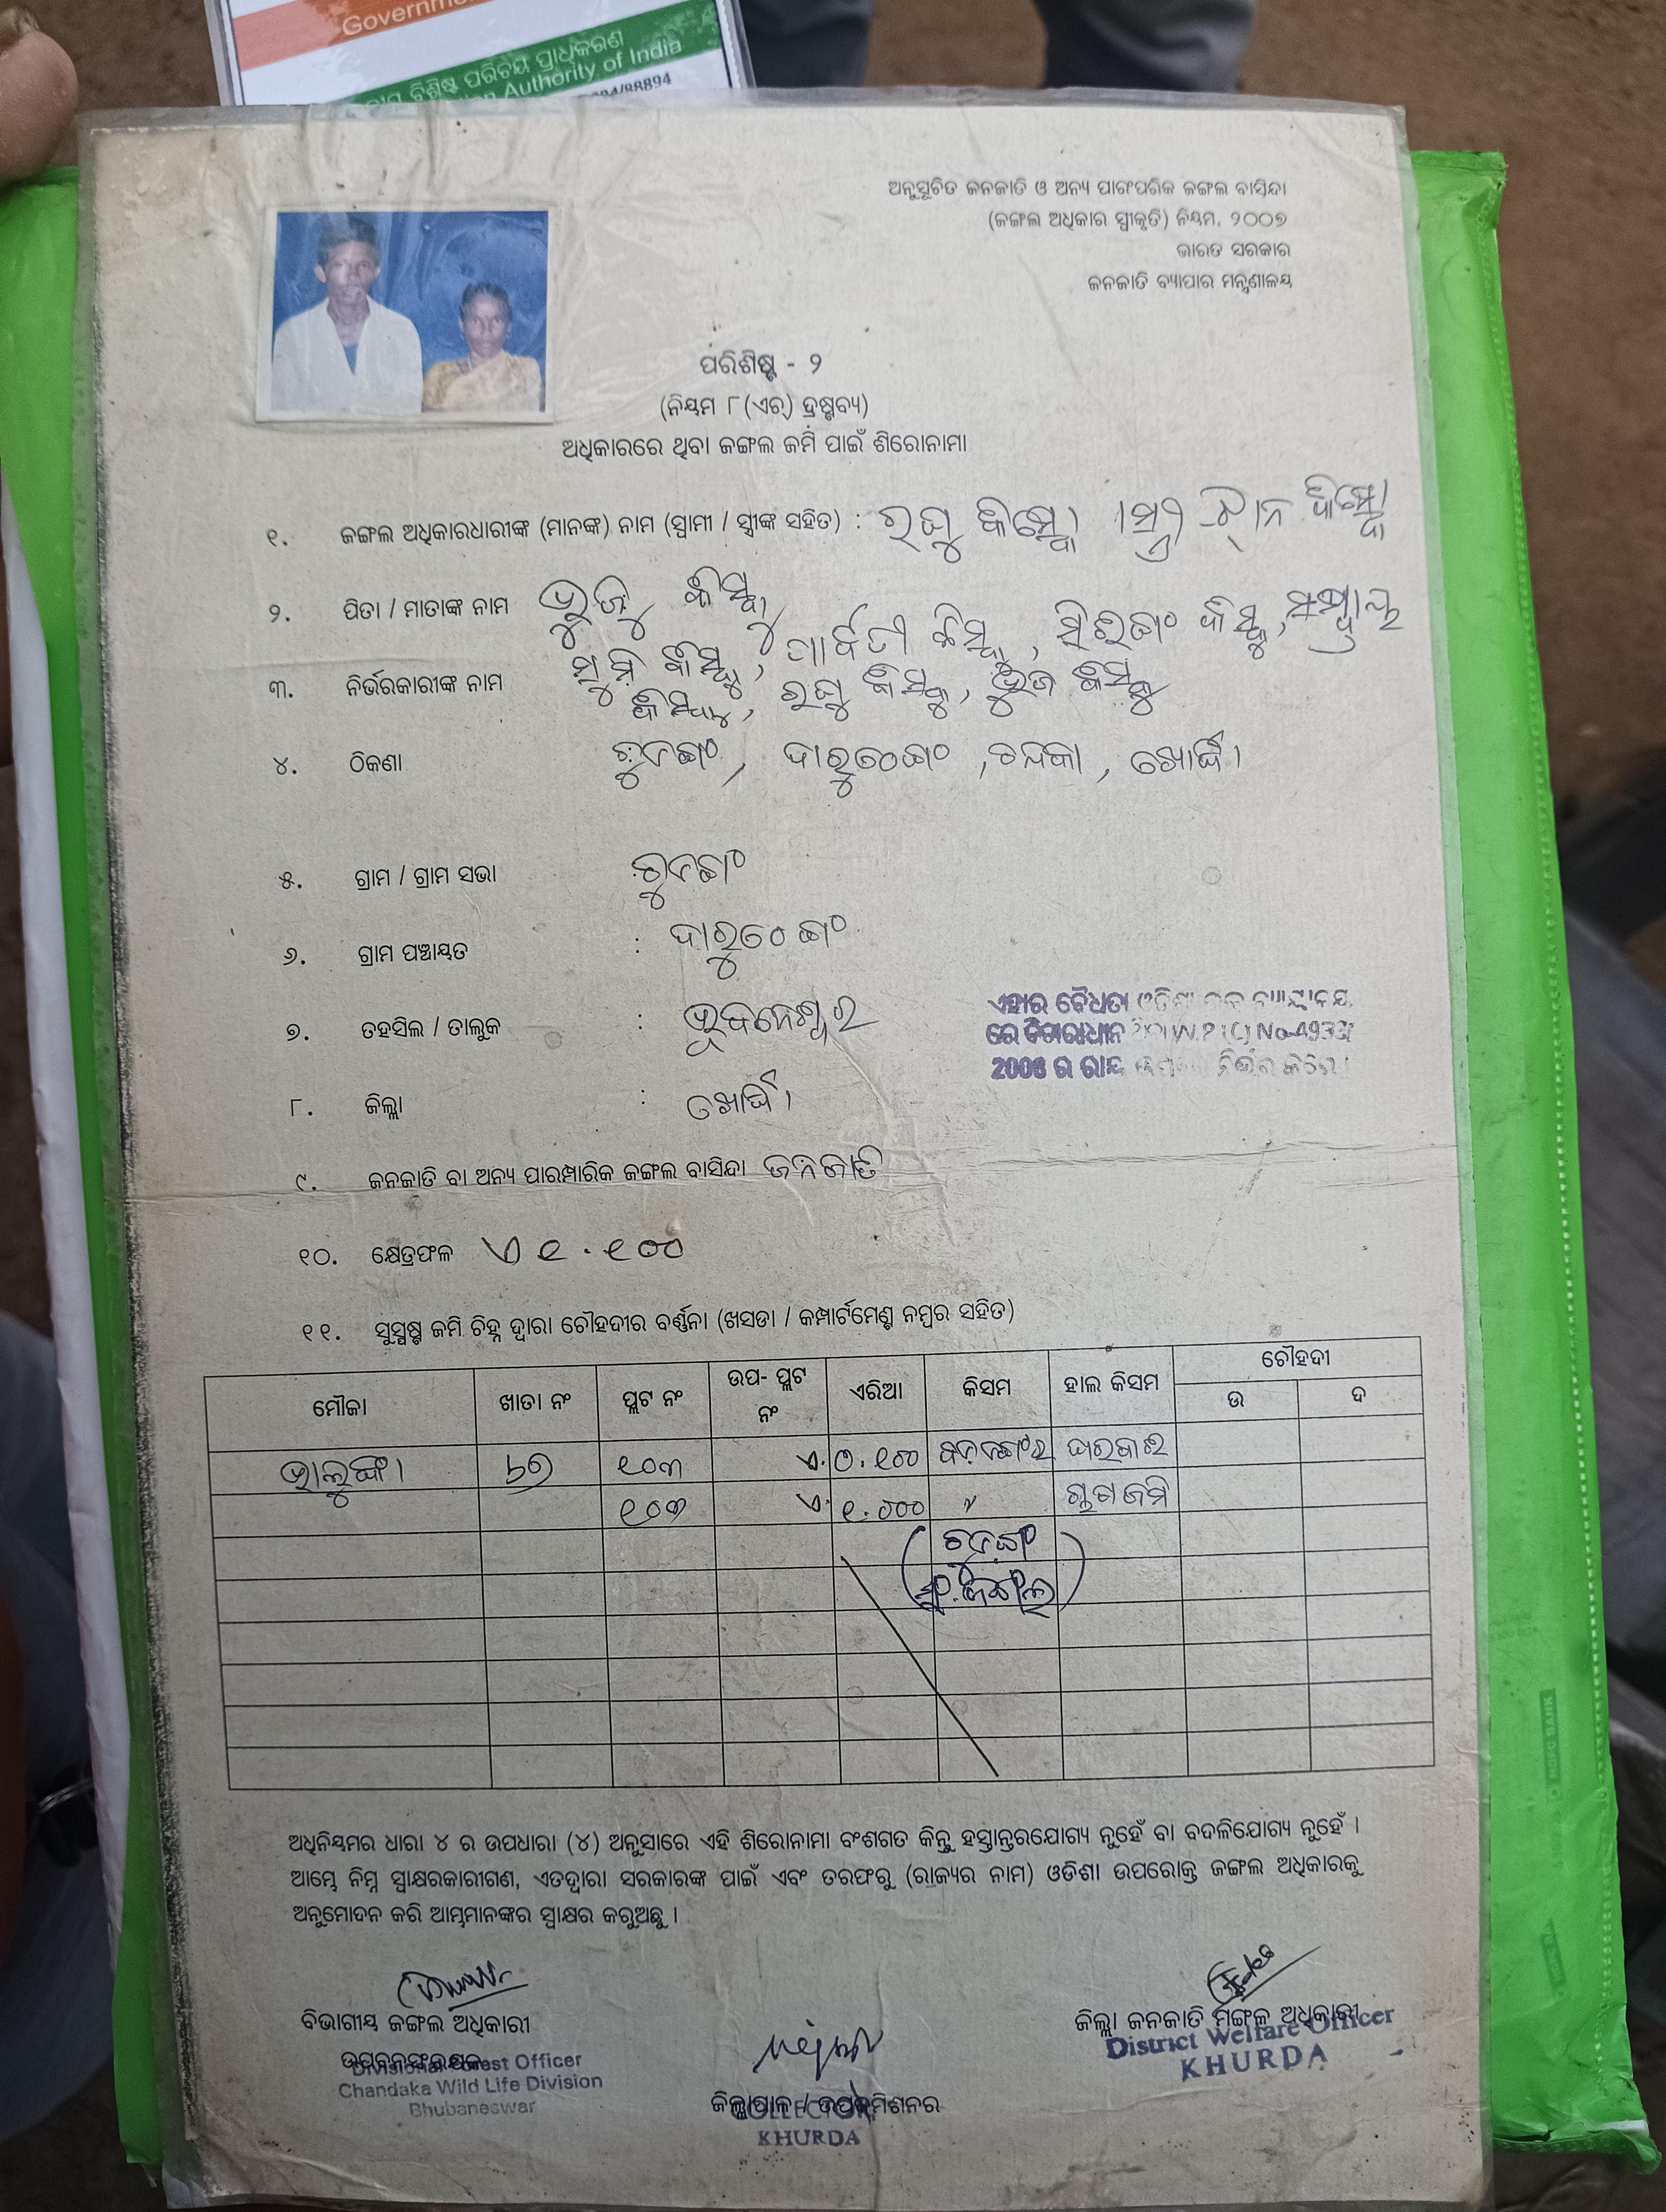 Governm
ବିଶିଷ୍ଟ ପରିଚୟ ପ୍ରାଧିକରଣ
Authority of India
/88894
ଅନୁସୂଚିତ ଜନଜାତି ଓ ଅନ୍ୟ ପାରଂପରିକ ଜଙ୍ଗଲ ବାସିନ୍ଦା
(ଜଙ୍ଗଲ ଅଧିକାର ସ୍ୱୀକୃତି) ନିୟମ, ୨୦୦୭
ଭାରତ ସରକାର
ଜନଜାତି ବ୍ୟାପାର ମନ୍ତ୍ରଣାଳୟ
ପରିଶିଷ୍ଟ - ୨
(ନିୟମ ୮(ଏଚ୍) ଦ୍ରଷ୍ଟବ୍ୟ)
ଅଧିକାରରେ ଥିବା ଜଙ୍ଗଲ ଜମି ପାଇଁ ଶିରୋନାମା
୧. ଜଙ୍ଗଲ ଅଧିକାରଧାରୀଙ୍କ (ମାନଙ୍କ) ନାମ (ସ୍ୱାମୀ / ସ୍ତ୍ରୀଙ୍କ ସହିତ) : ରଘୁ
୨. ପିତା / ମାତାଙ୍କ ନାମ ଭୁଜୁ କିସ୍କୁ
୩. ନିର୍ଭରକାରୀଙ୍କ ନାମ କିସ୍କୁ, ପାର୍ବତୀ କିସ୍କୁ, କିସ୍କୁ,
ରଘୁ କିସ୍କୁ, କିସ୍କୁ
୪. ଠିକଣା ଦାରୁଠେଙ୍ଗ, ଚନ୍ଦକା, ଖୋର୍ଦ୍ଧା
୫. ଗ୍ରାମ / ଗ୍ରାମ ସଭା
୬. ଗ୍ରାମ ପଞ୍ଚାୟତ : ଦାରୁଠେଙ୍ଗ
୭. ତହସିଲ / ତାଲୁକ : ଭୁବନେଶ୍ୱର
ଏହାର ବୈଧତା
ରେ ବିଚାରାଧୀନ W.P (C) No-4933/
2008 ର ରାୟ ନିର୍ଭର କରିବେ।
୮. ଜିଲ୍ଲା : ଖୋର୍ଦ୍ଧା
୯. ଜନଜାତି ବା ଅନ୍ୟ ପାରମ୍ପାରିକ ଜଙ୍ଗଲ ବାସିନ୍ଦା ଜନଜାତି
୧୦. କ୍ଷେତ୍ରଫଳ ଏ ୧.୧୦୦
୧୧. ସୁସ୍ପଷ୍ଟ ଜମି ଚିହ୍ନ ଦ୍ୱାରା ଚୌହଦୀର ବର୍ଣ୍ଣନା (ଖସଡା / କମ୍ପାର୍ଟମେଣ୍ଟ ନମ୍ବର ସହିତ)
ମୌଜା ଖାତା ନଂ ପ୍ଲଟ ନଂ ଉପ- ପ୍ଲଟ ନଂ ଏରିଆ କିସମ ହାଲ କିସମ ଚୌହଦୀ
ଉ ଦ
୬୭ ୧୦୩ ଏ.୦.୧୦୦ ଘରବାରି
୧୦୩ ଏ.୧.୦୦୦ " ଜମି
ଅଧିନିୟମର ଧାରା ୪ ର ଉପଧାରା (୪) ଅନୁସାରେ ଏହି ଶିରୋନାମା ବଂଶଗତ କିନ୍ତୁ ହସ୍ତାନ୍ତରଯୋଗ୍ୟ ନୁହେଁ ବା ବଦଳିଯୋଗ୍ୟ ନୁହେଁ ।
ଆମ୍ଭେ ନିମ୍ନ ସ୍ୱାକ୍ଷରକାରୀଗଣ, ଏତଦ୍ୱାରା ସରକାରଙ୍କ ପାଇଁ ଏବଂ ତରଫରୁ (ରାଜ୍ୟର ନାମ) ଓଡିଶା ଉପରୋକ୍ତ ଜଙ୍ଗଲ ଅଧିକାରକୁ
ଅନୁମୋଦନ କରି ଆମ୍ଭମାନଙ୍କର ସ୍ୱାକ୍ଷର କରୁଅଛୁ ।
ବିଭାଗୀୟ ଜଙ୍ଗଲ ଅଧିକାରୀ
ଉପବନସଂରକ୍ଷକ
Divisional Forest Officer
Chandaka Wild Life Division
Bhubaneswar
ଜିଲ୍ଲାପାଳ / ଉପକମିଶନର
COLLECTOR
KHURDA
ଜିଲ୍ଲା ଜନଜାତି ମଙ୍ଗଳ ଅଧିକାରୀ
District Welfare Officer
KHURDA